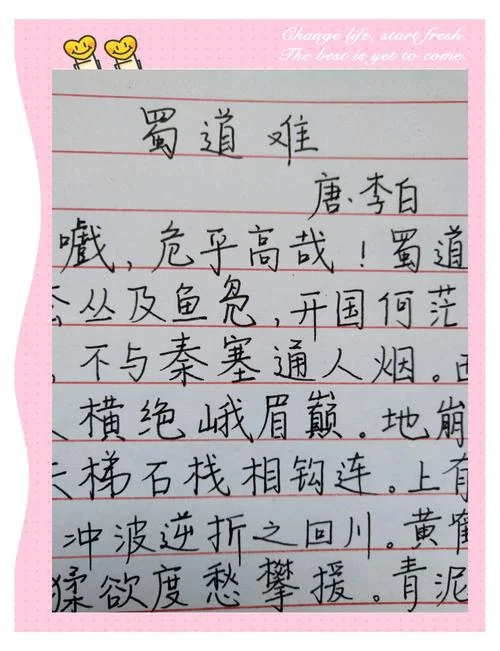 Change life, start fresh.
The best is yet to come.
蜀道难
唐·李白
嚱,危乎高哉!蜀道
丛及鱼凫,开国何茫
,不与秦塞通人烟。西
横绝峨眉巅。地崩
梯石栈相钩连。上有
冲波逆折之回川。黄鹤
猱欲度愁攀援。青泥